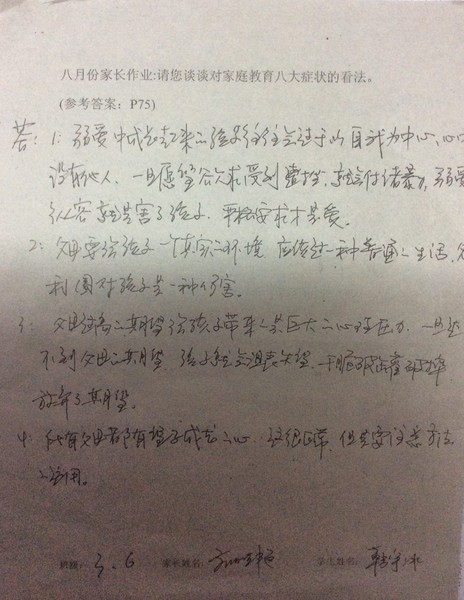 八月份家长作业:请您谈谈对家庭教育八大症状的看法。
(参考答案：P75)
答：1：溺爱中成长起来的孩子往往会过于以自我为中心,心中
没有他人，一旦愿望欲求受到 就会付诸暴力,溺爱
纵容就是害了孩子，严格要求才是爱。
2：父母要给孩子一个真实的环境，应该过一种普通人生活，
利 对孩子是一种伤害。
3：父母过高的期望给孩子带来的是巨大的心理压力，一旦达
不到父母的期望，孩子就会沮丧失望，干脆破罐破摔
放弃了期望。
4：所有父母都有望子成龙之心，这很正常，但是要注意方法
的运用。
班级：3.6 家长姓名： 学生姓名：